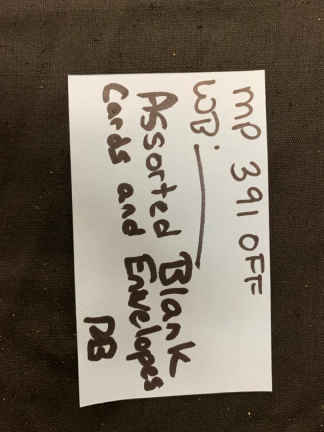 MP 391 OFF
WB:
Assorted Blank
Cards and Envelopes